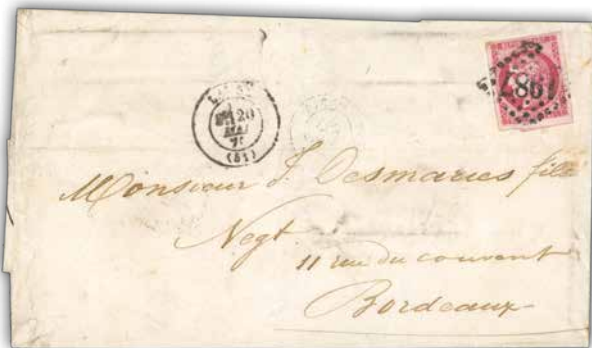 1987
20
MAI
(51)
Monsieur J. Desmaries fils
Negt
11 rue du couvent
Bordeaux